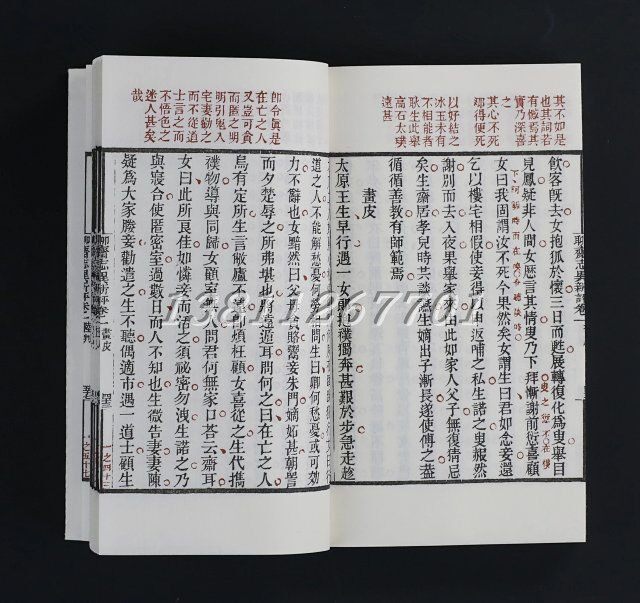 其不如是
也其詞若
有憾焉其
實乃深喜
之
其心不死
那得便死
以好結之
冰玉未有
不相能者
耿生此舉
高石太璞
遠甚
聊齋志異新評卷一
飲客既去女抱狐於懷三日而甦展轉復化為叟舉目
見鳳疑非人間女歷言其情叟乃下拜慚謝前愆喜顧
女曰我固謂汝不死今果然矣女謂生曰君如念妾還
乞以樓宅相假使妾得以申返哺之私生諾之叟赧然
謝別而去入夜舉家果來由此如家人父子無復猜忌
矣生齋居孝兒時共談讌生嫡出子漸長遂使傅之蓋
循循善教有師範焉
畫皮
太原王生早行遇一女郎抱襆獨奔甚艱於步急走趁
即令眞是
在亡之人
又豈可貪
而匿之明
明引鬼入
宅妻勸之
而不從道
士言之而
不悟色之
迷人甚矣
哉
道之人不能解愁憂何勞相問生曰卿何愁憂或可効
力不辭也女黯然曰父母貪賂鬻妾朱門嫡妬甚朝詈
而夕楚辱之所弗堪也將遠遁耳問何之曰在亡之人
烏有定所生言敝廬不遠即煩枉顧女喜從之生代攜
襆物導與同歸女顧室無人問君何無家口荅云齋耳
女曰此所良佳如憐妾而活之須祕密勿洩生諾之乃
與寢合使匿密室過數日而人不知也生微告妻妻陳
疑為大家媵妾勸遣之生不聽偶適市遇一道士顧生
聊齋志異新評卷一 畫皮
一之四十三
13811267701